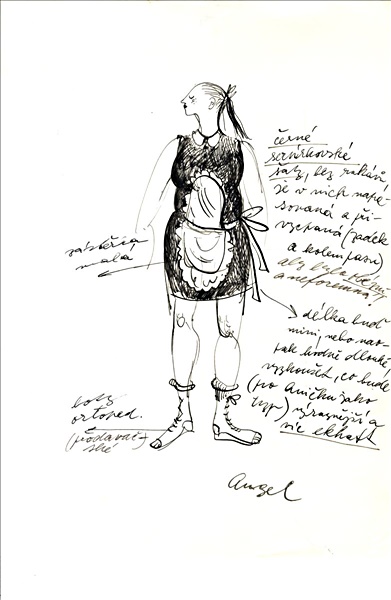 černé
servírkovské
šaty, bez rukávů
je v nich nape-
sovaná a při-
vycpaná (zadek
a kolem pasu)
aby byla
a neforemná!
zástěrka
malá
délka buď
mini, nebo nao-
pak hodně dlouhé,
vyzkoušet, co bude
(pro Aničku jako
typ) výraznější a
víc ekhaft
boty
ortoped.
(prodavač-
ské)
Angel